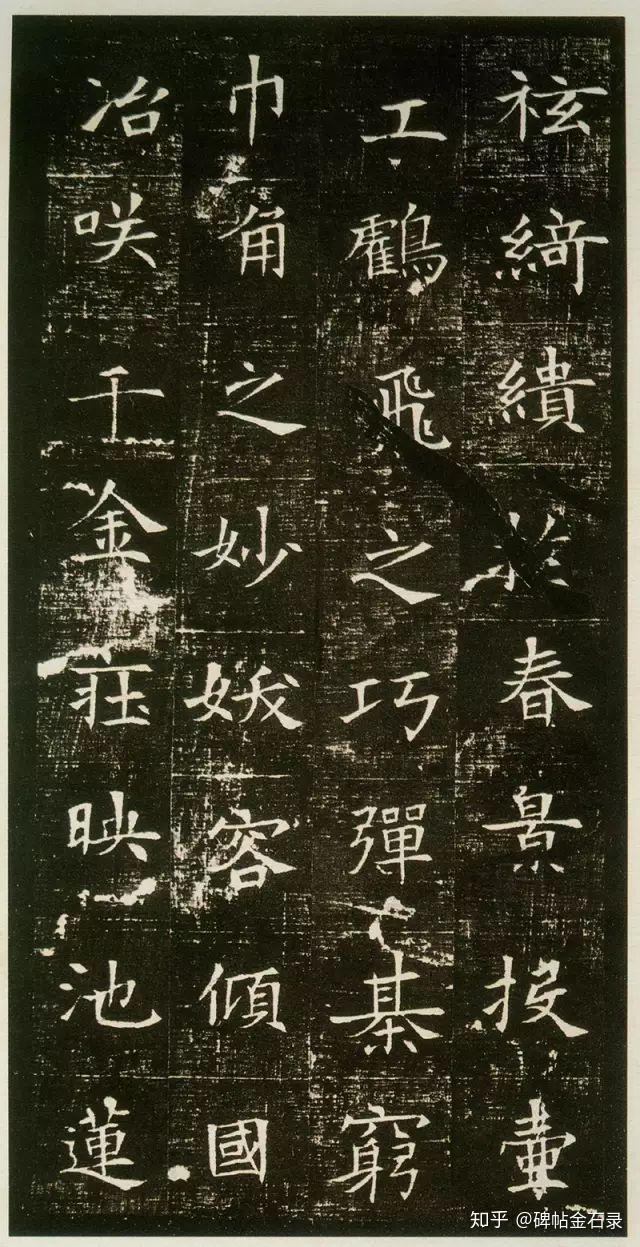 袨綺繢於春景投壺
工鸖飛之巧彈棊窮
巾角之妙娥容傾國
冶咲千金莊映池蓮
知乎 @碑帖金石录